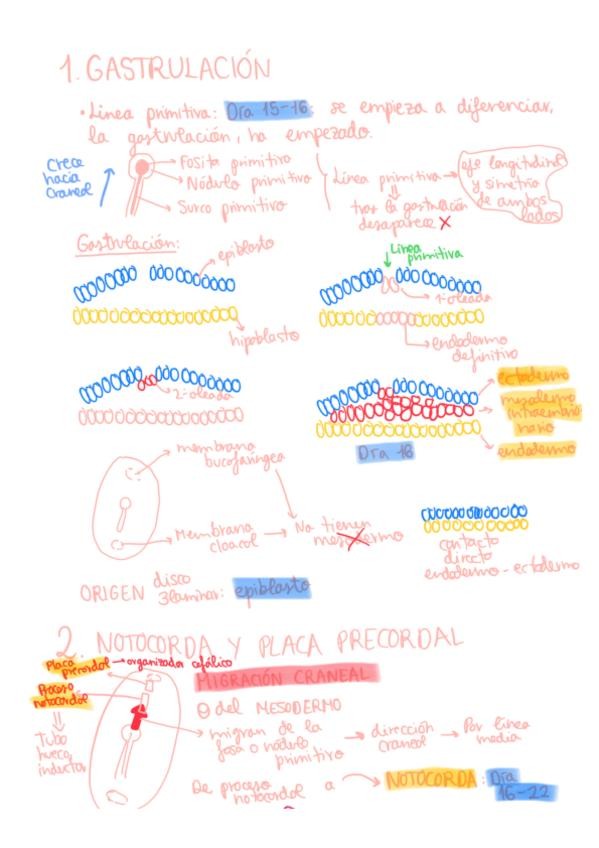 1. GASTRULACIÓN
• Línea primitiva: Día 15-16: se empieza a diferenciar,
la gastrulación, ha empezado.
Crece
hacia
craneal
Fosita primitiva
Nódulo primitivo
Surco primitivo
Línea primitiva → eje longitudinal
y simetría
de ambos
lados
tras la gastrulación
desaparece X
Gastrulación:
epiblasto
hipoblasto
Línea
primitiva
1ª oleada
endodermo
definitivo
2ª oleada
ectodermo
mesodermo
intraembrio
nario
endodermo
Día 16
membrana
bucofaríngea
Membrana
cloacal → No tienen
mesodermo
contacto
directo
endodermo - ectodermo
ORIGEN disco
3laminar: epiblasto
2. NOTOCORDA Y PLACA PRECORDAL
Placa
precordal → organizador cefálico
Proceso
notocordal
Tubo
hueco
inductor
MIGRACIÓN CRANEAL
del MESODERMO
migran de la
fosa o nódulo
primitivo → dirección
craneal → Por línea
media
De proceso
notocordal a → NOTOCORDA: Día
16-22